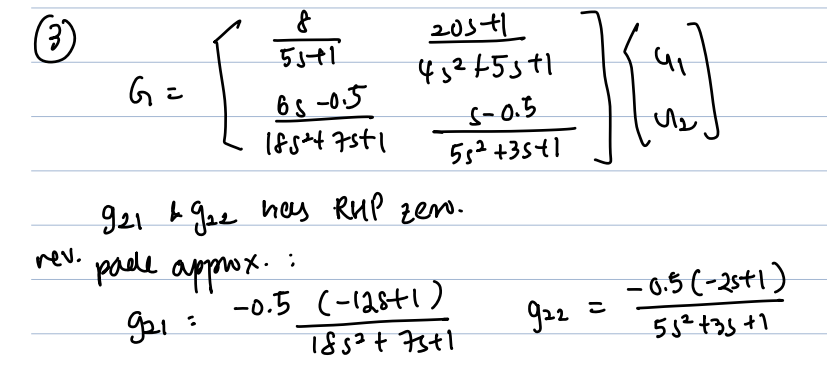 ③
G = [ 8/(5s+1)   (20s+1)/(4s²+5s+1) ] [ u1 ]
[ (6s-0.5)/(18s²+7s+1)   (s-0.5)/(5s²+3s+1) ] [ u2 ]
g21 & g22 has RHP zero.
rev. pade approx. :
g21 : -0.5 (-12s+1)/(18s²+7s+1)   g22 = -0.5(-2s+1)/(5s²+3s+1)